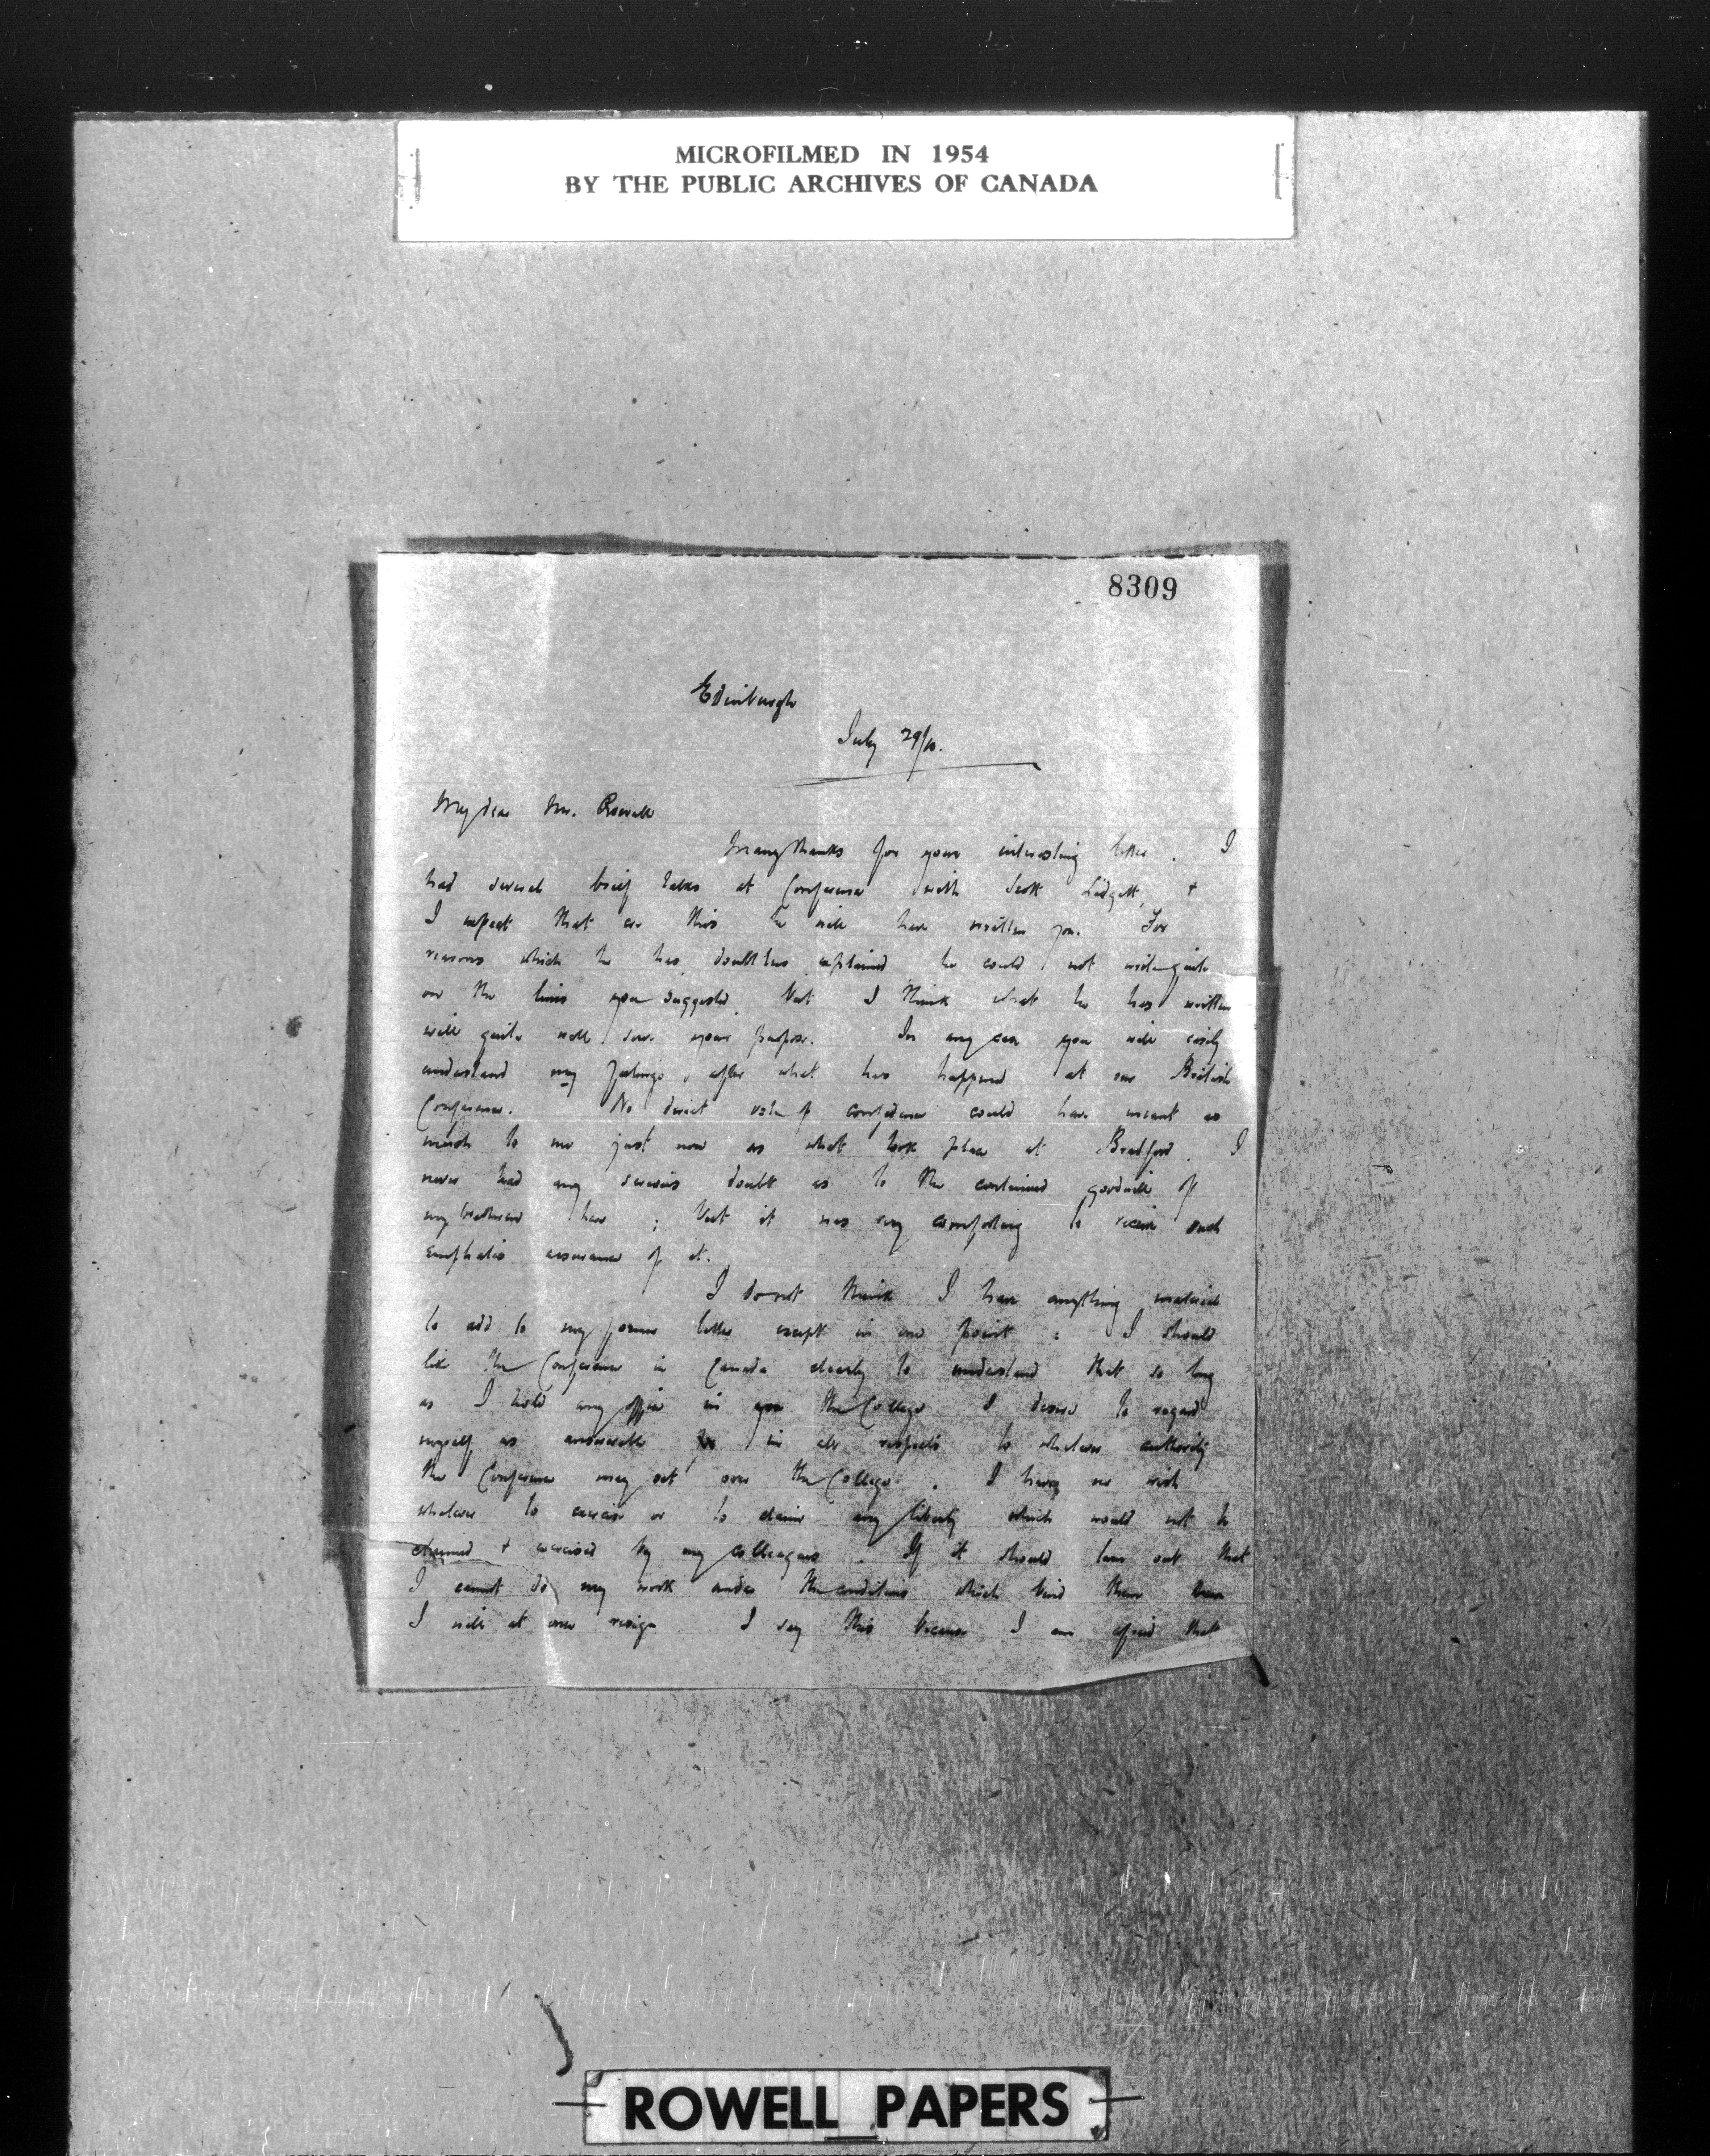 MICROFILMED IN 1954
BY THE PUBLIC ARCHIVES OF CANADA
8309
Edinburgh
July 29/10.
My dear Mr. Rowell
Many thanks for your interesting letter. I
had several brief talks at Conference with Scott Lidgett, +
I expect that ere this he will have written you. For
reasons which he has doubtless explained he could not write quite
on the lines you suggested, but I think what he has written
will quite well serve your purpose. In any case you will easily
understand my feelings, after what has happened at our British
Conference. No direct vote of confidence could have meant as
much to me just now as what took place at Bradford. I
never had any serious doubt as to the continued goodwill of
my brethren here; but it was very comforting to receive such
emphatic assurance of it.
I do not think I have anything material
to add to my former letter except in one point: I should
like the Conference in Canada clearly to understand that so long
as I hold any office in the College I desire to regard
myself as answerable in all respects to whatever authority
the Conference may set over the College. I have no wish
whatever to exercise or to claim any liberty which would not be
claimed + exercised by my colleagues. If it should turn out that
I cannot do my work under the conditions which bind them
I will at once resign. I say this because I am afraid that
ROWELL PAPERS